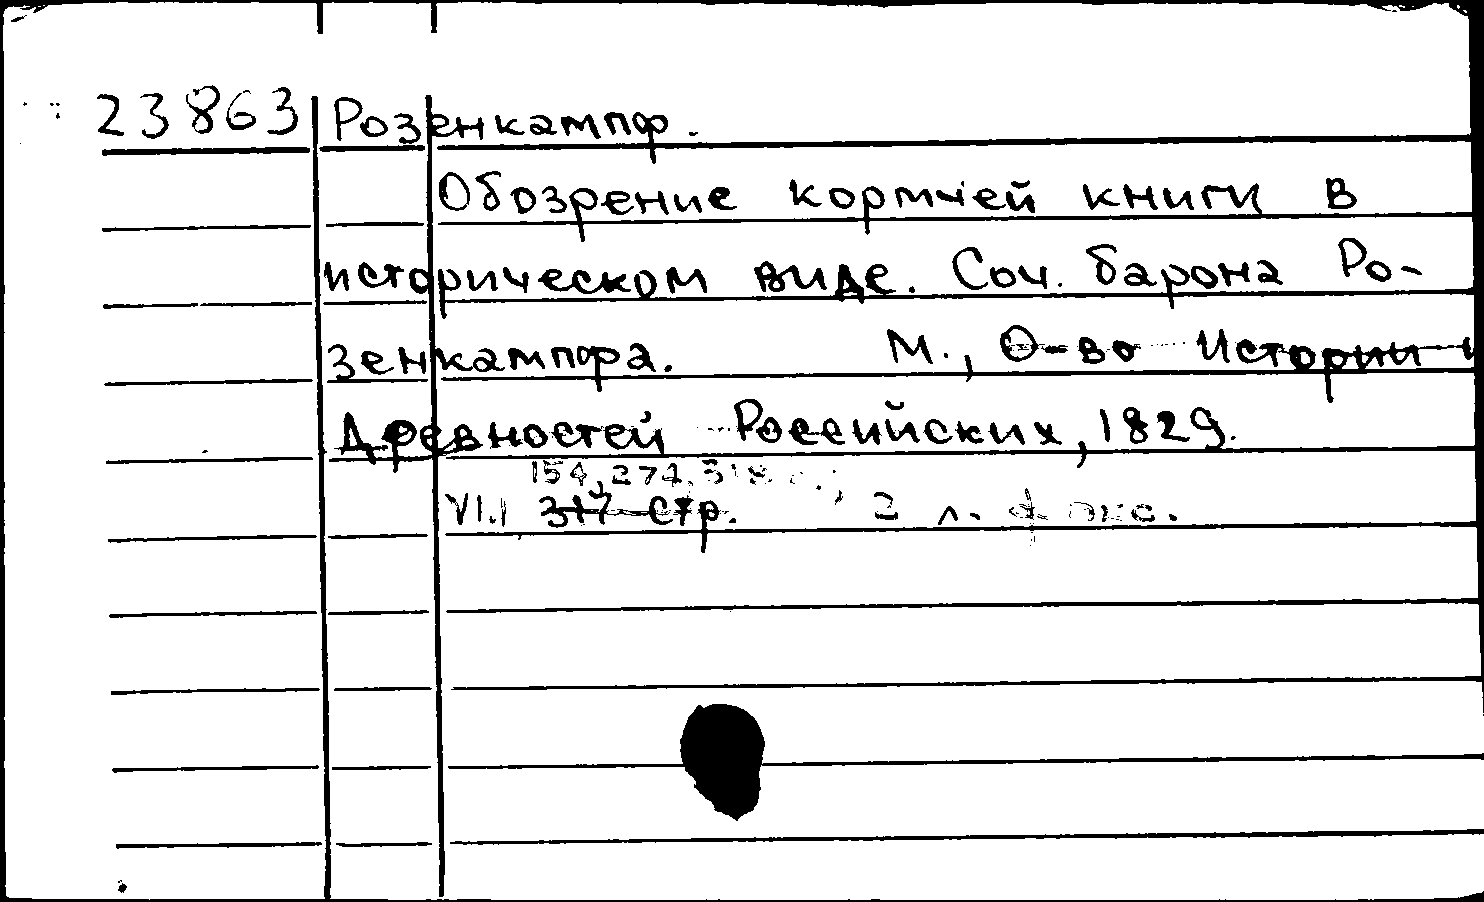 23863 Розенкампф.
Обозрение кормчей книги в
историческом виде. Соч. барона Ро-
зенкампфа. М., О-во Истории и
Древностей Российских, 1829.
154, 274, 318 с.,
VI, 317 стр. 2 л. факс.